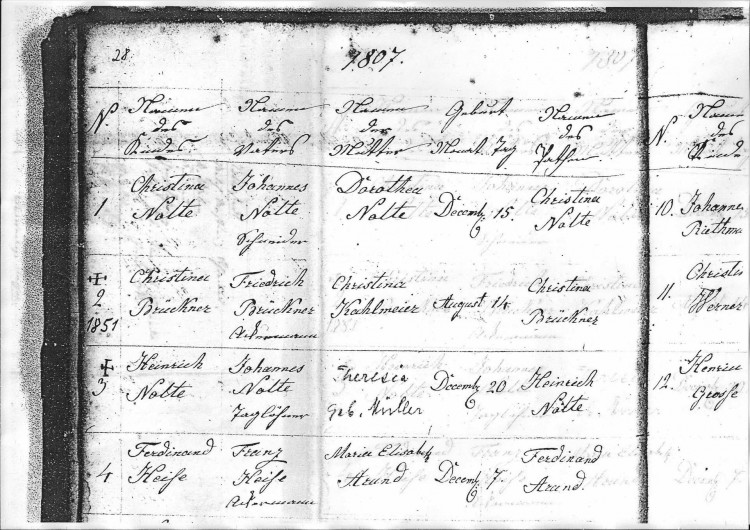 28
1807.
N.
Name des Kindes.
Name des Vaters
Name der Mutter
Geburt Monat. Tag
Name des Pathen
N.
Name des Kinde
1
Christina Nolte
Johannes Nolte Schneider
Dorothea Nolte
Decemb. 15.
Christina Nolte
10.
Johanne
✝ 2 1851
Christina Brückner
Friedrich Brückner Ackermann
Christina Kahlmeier
August 14
Christina Brückner
11.
Christi Werner
✝ 3
Heinrich Nolte
Johannes Nolte Taglöhner
Theresia geb. Müller
Decemb. 20
Heinrich Nolte
12.
Henrie Grosse
4
Ferdinand Heise
Franz Heise Ackermann
Maria Elisabeth Arand
Decemb. 7.
Ferdinand Arand.